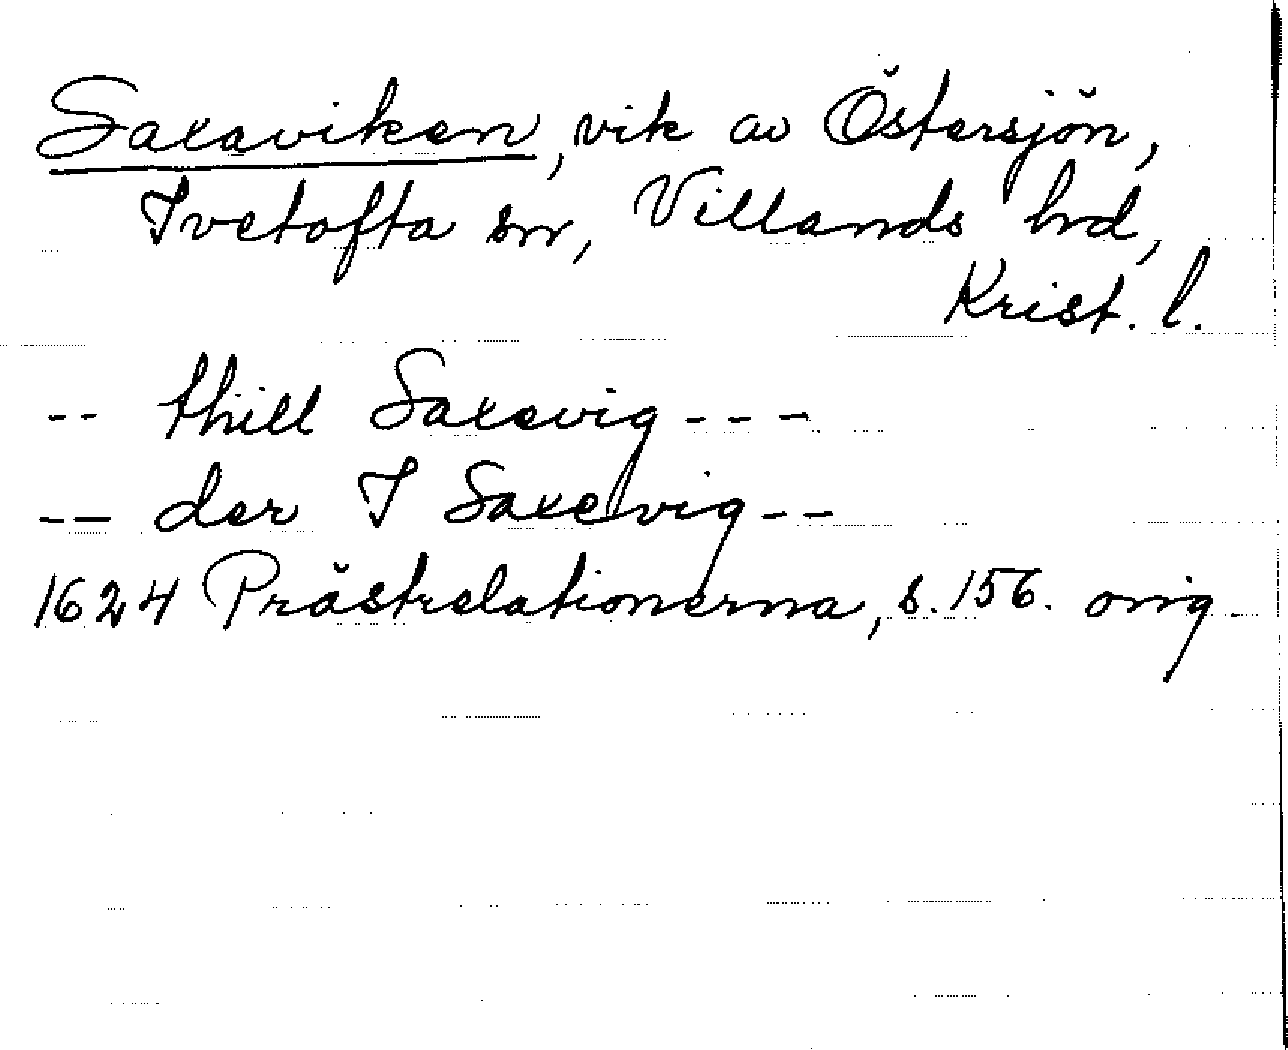 Saxaviken, vik av Östersjön,
Ivetofta sn, Villands hd,
Krist. l.
-- thill Saxevig ---
-- der I Saxevig --
1624 Prästrelationerna, s. 156. orig.